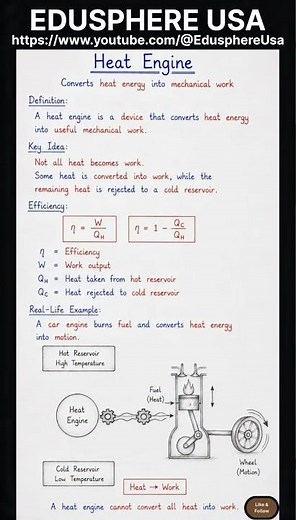 EDUSPHERE USA
https://www.youtube.com/@EdusphereUsa
Heat Engine
Converts heat energy into mechanical work
Definition:
A heat engine is a device that converts heat energy
into useful mechanical work.
Key Idea:
Not all heat becomes work.
Some heat is converted into work, while the
remaining heat is rejected to a cold reservoir.
Efficiency:
η = W/Q_H
η = 1 - Q_C/Q_H
η = Efficiency
W = Work output
Q_H = Heat taken from hot reservoir
Q_C = Heat rejected to cold reservoir
Real-Life Example:
A car engine burns fuel and converts heat energy
into motion.
Hot Reservoir
High Temperature
Fuel
(Heat)
Heat
Engine
Wheel
(Motion)
Cold Reservoir
Low Temperature
Heat → Work
A heat engine cannot convert all heat into work.
Like &
Follow